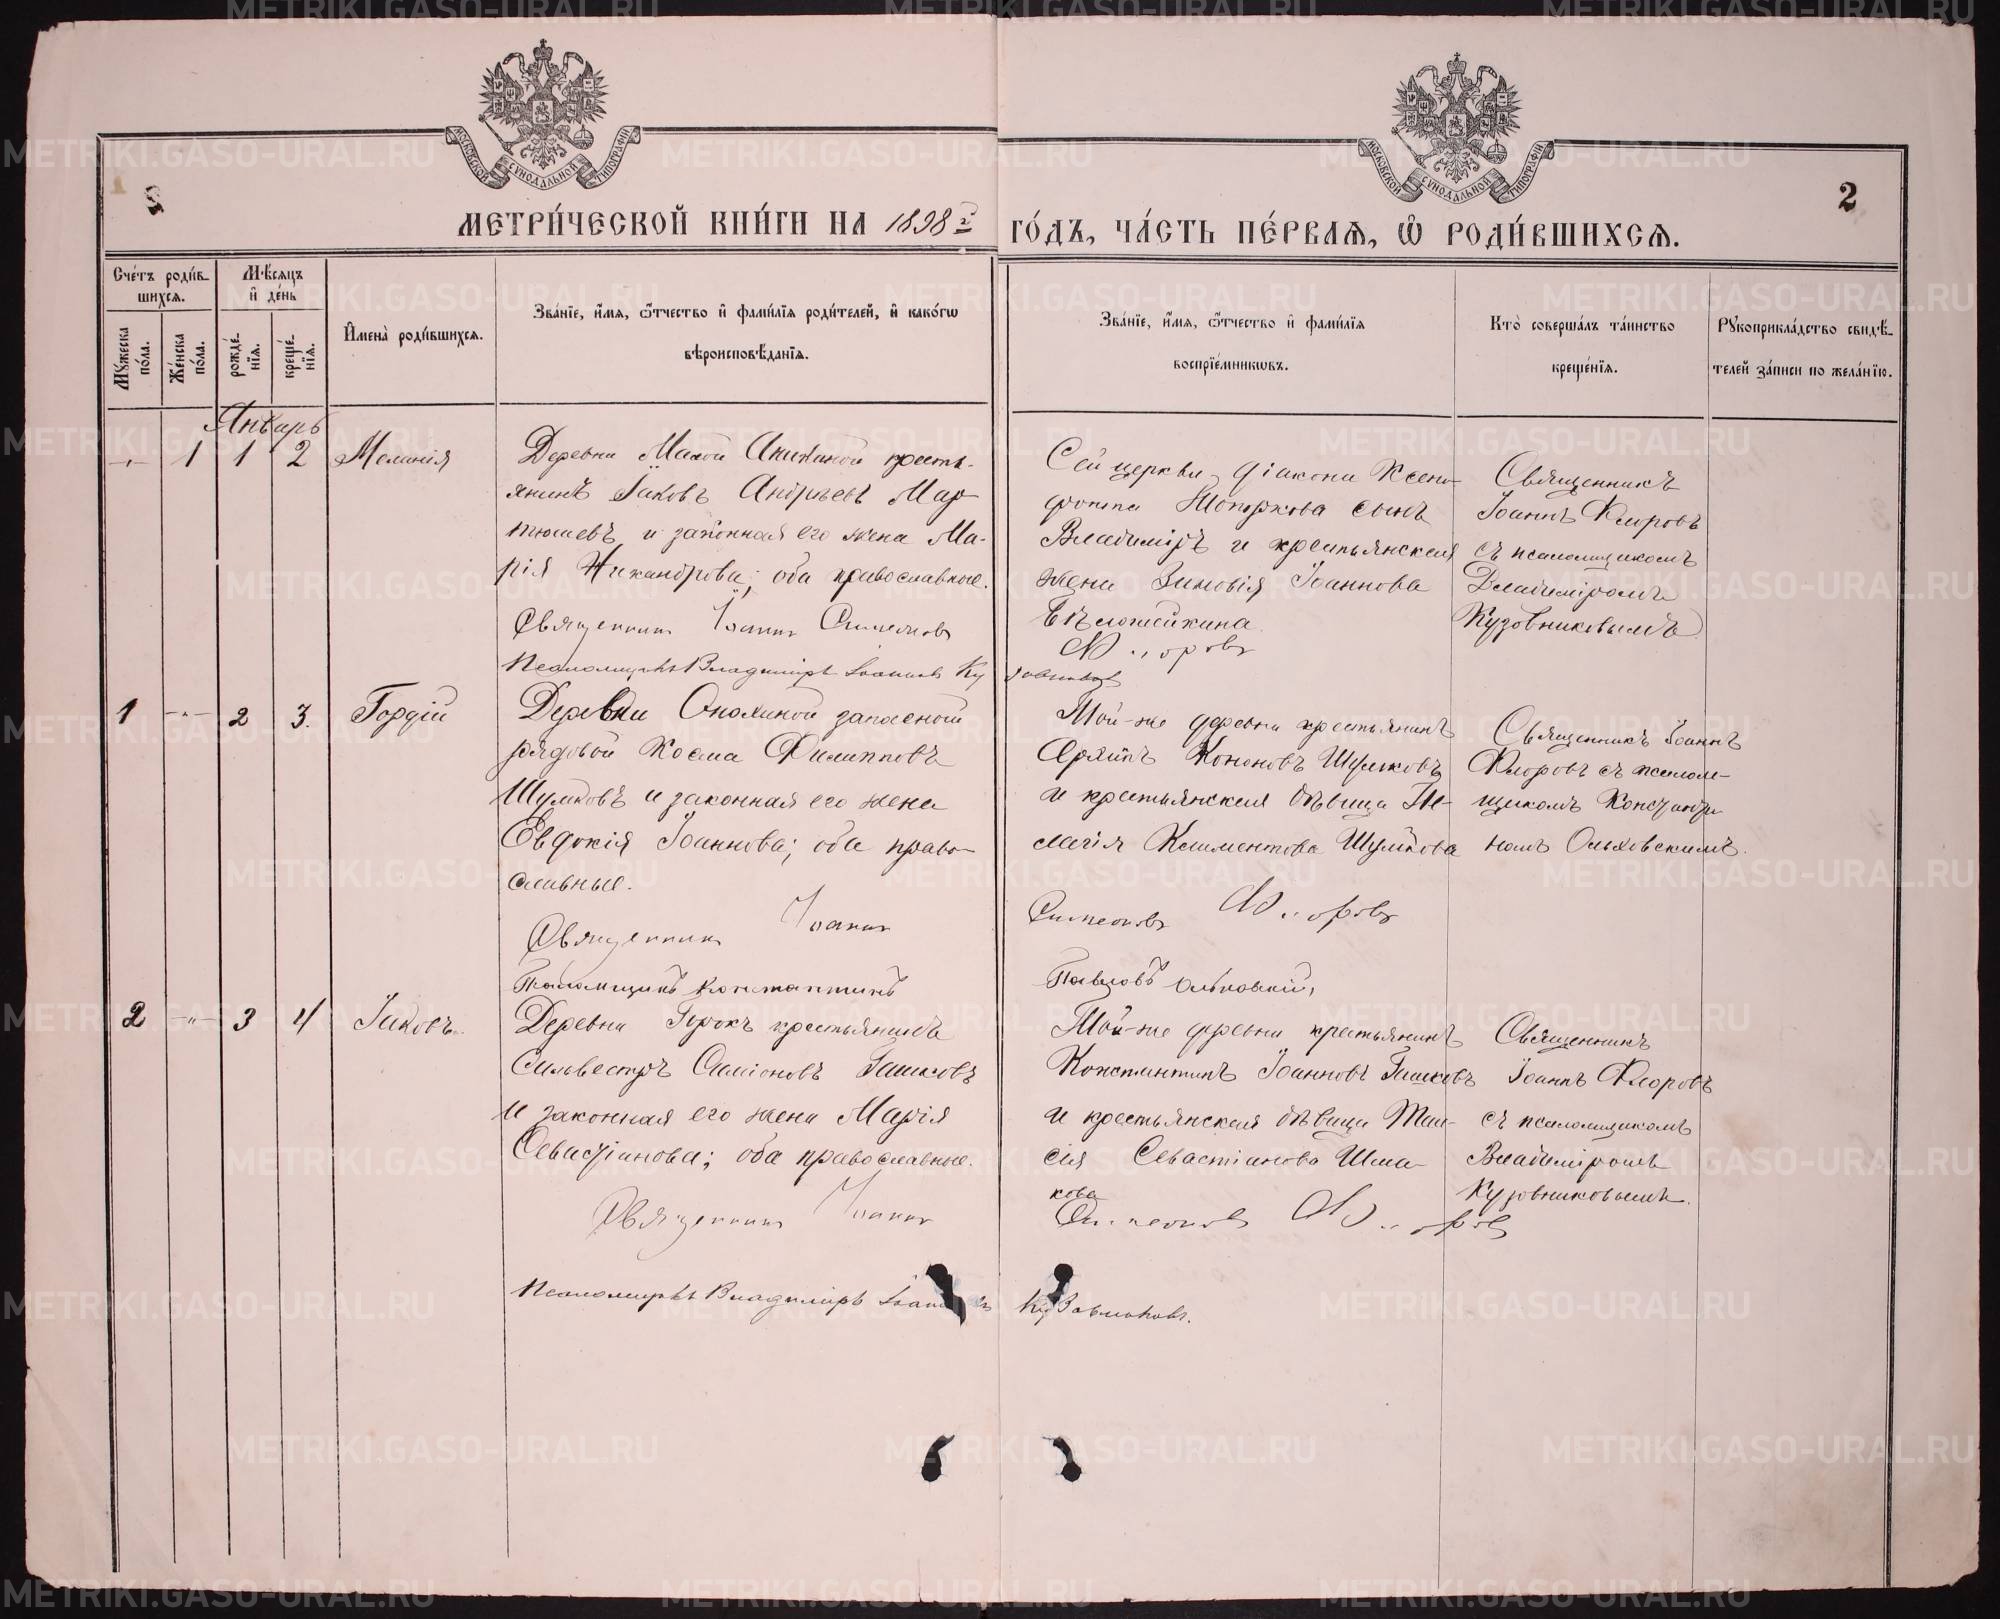 МОСКОВСКОЙ СѴНОДАЛЬНОЙ ТИПОГРАФІИ
МОСКОВСКОЙ СѴНОДАЛЬНОЙ ТИПОГРАФІИ
2
МЕТРИ́ЧЕСКОЙ КНИ́ГИ НА 1898 г. ГО́ДЪ, ЧА́СТЬ ПЕ́РВАѦ, Ѡ҆ РОДИ́ВШИХСѦ.
Сче́тъ роди́в-
шихсѧ.
Мꙋжеска по́ла.
Же́нска по́ла.
Мѣ́сяцъ
и҆ де́нь
рожде́-
нїѧ.
креще́-
нїѧ.
И҆мена̀ роди́вшихсѧ.
Зва́нїе, и҆́мѧ, ѻ҆́тчество и҆ фами́лїѧ роди́телей, и҆ како́гѡ
вѣроисповѣ́данїѧ.
Зва́нїе, и҆́мѧ, ѻ҆́тчество и҆ фами́лїѧ
воспрїе́мникѡвъ.
Кто̀ соверша́лъ та́инство
креще́нїѧ.
Рꙋкоприкла́дство свидѣ́-
телей за́писи по жела́нїю.
Январь
1 1 2 Меланія
Деревни Малой крестья-
янинъ Іаковъ Андреевъ Мар-
тюшевъ и законная его жена Ма-
рія Никандрова; оба православные.
Священникъ Іоаннъ Симеоновъ
Псаломщикъ Владиміръ Іоанновъ Ку
Сей церкви діакона Ксено-
фонта сынъ
Владиміръ и крестьянская
жена Зиновія Іоаннова
Флоровъ
зовниковъ
Священникъ
Іоаннъ Флоровъ
съ псаломщикомъ
Владиміромъ
Кузовниковымъ
1 2 3. Гордій
Деревни запасной
рядовой Косма Филипповъ
Шулковъ и законная его жена
Евдокія Іоаннова; оба право-
славные.
Священникъ Іоаннъ
Псаломщикъ Константинъ
Той-же деревни крестьянинъ
Кононовъ Шулковъ
и крестьянская дѣвица Пе-
лагія Климентова Шулкова
Симеоновъ Флоровъ
Павловъ Ольховскій,
Священникъ Іоаннъ
Флоровъ съ псалом-
щикомъ Константи-
номъ Ольховскимъ.
2 3 4 Іаковъ
Деревни Горокъ крестьянинъ
Сильвестръ Симіоновъ Гашковъ
и законная его жена Марія
Севастіанова; оба православные.
Священникъ Іоаннъ
Псаломщикъ Владиміръ
Той-же деревни крестьянинъ
Константинъ Іоанновъ Гашковъ
и крестьянская дѣвица Таи-
сія Севастіанова Шма-
кова
Симеоновъ Флоровъ
Кузовниковъ.
Священникъ
Іоаннъ Флоровъ
съ псаломщикомъ
Владиміромъ
Кузовниковымъ.
METRIKI.GASO-URAL.RU